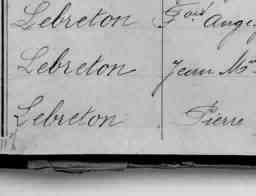 Lebreton Fçois Ange
Lebreton Jean M
Lebreton Pierre